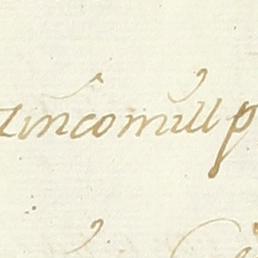 zincomill p